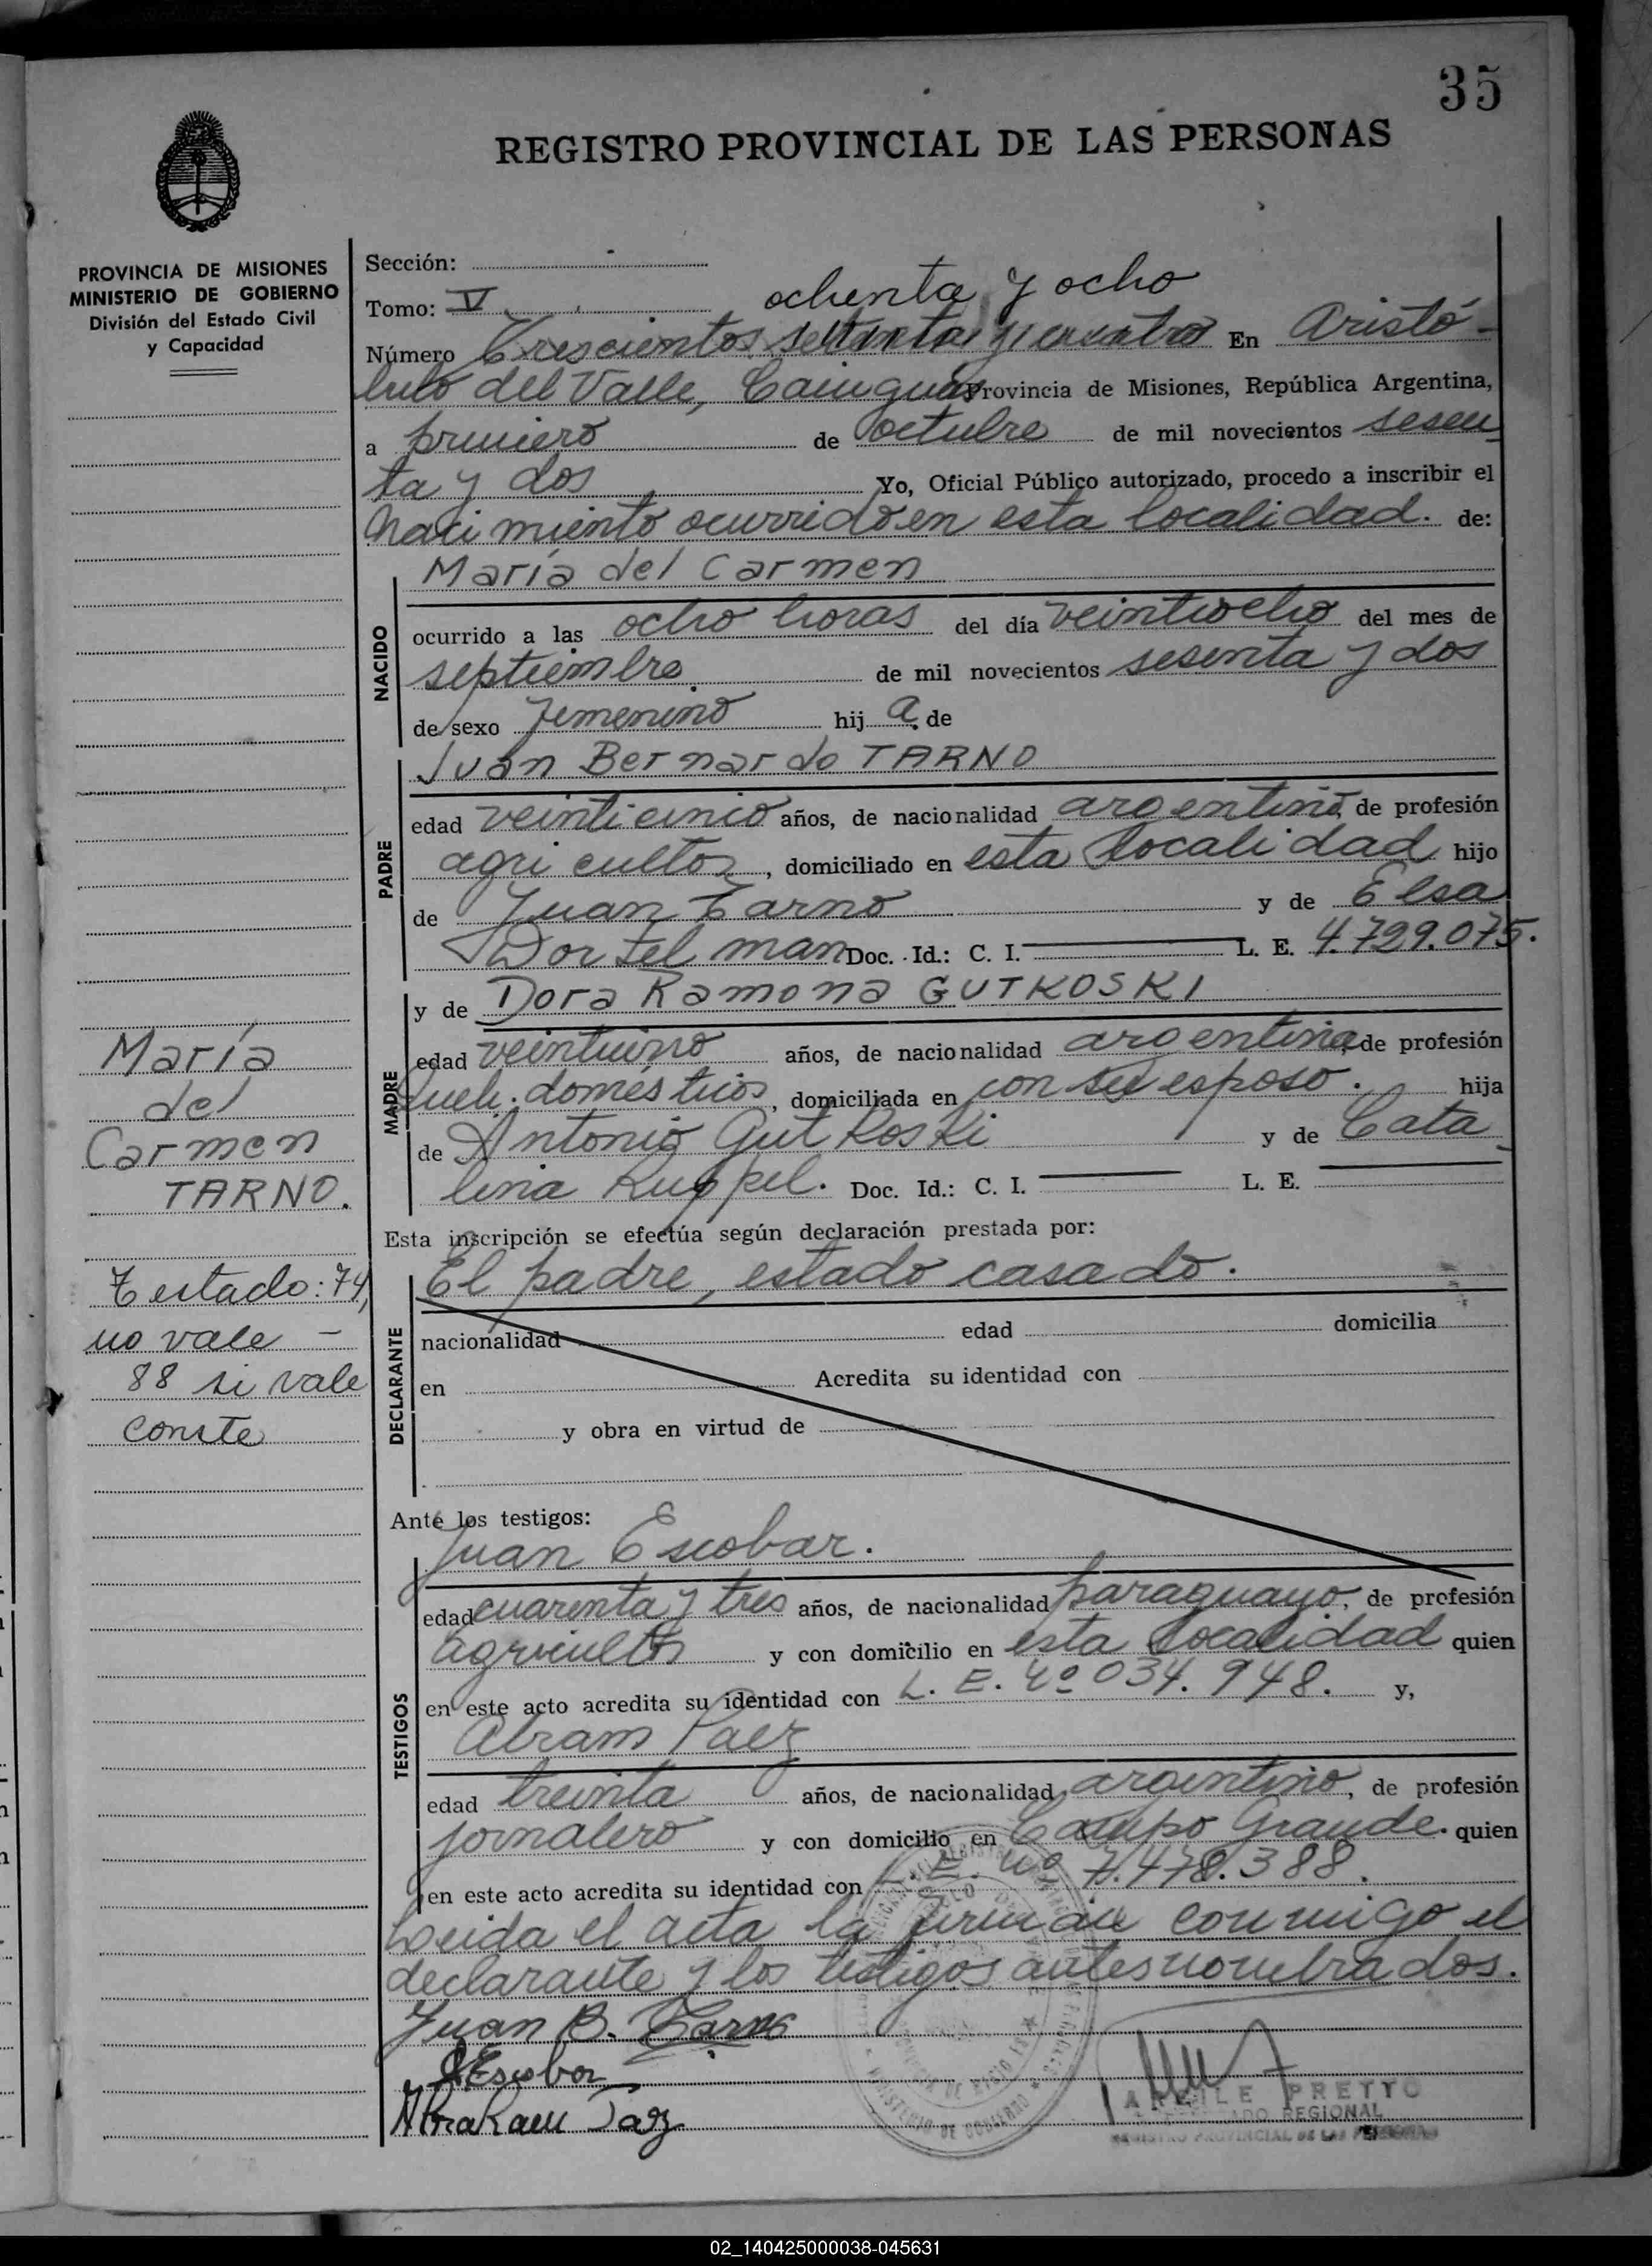 35
REGISTRO PROVINCIAL DE LAS PERSONAS
PROVINCIA DE MISIONES
MINISTERIO DE GOBIERNO
División del Estado Civil
y Capacidad
Sección:
Tomo: V
ochenta y ocho
Número Trescientos setenta y cuatro En Aristó-
bulo del Valle, Cainguas Provincia de Misiones, República Argentina,
a primero de octubre de mil novecientos sesen
ta y dos Yo, Oficial Público autorizado, procedo a inscribir el
nacimiento ocurrido en esta localidad. de:
NACIDO
María del Carmen
ocurrido a las ocho horas del día veintiocho del mes de
septiembre de mil novecientos sesenta y dos
de sexo femenino hij a de
PADRE
Juan Bernardo TARNO
edad veinticinco años, de nacionalidad argentino, de profesión
agricultor, domiciliado en esta localidad hijo
de Juan Tarno y de Elsa
Dortelman Doc. Id.: C. I. L. E. 4.729.075.
MADRE
y de Dora Ramona GUTKOSKI
edad veintiuno años, de nacionalidad argentina, de profesión
queh. domésticos, domiciliada en con su esposo. hija
de Antonio Gutkoski y de Cata
lina Ruppel. Doc. Id.: C. I. L. E.
Esta inscripción se efectúa según declaración prestada por:
DECLARANTE
El padre, estado casado.
nacionalidad edad domicilia
en Acredita su identidad con
y obra en virtud de
Ante los testigos:
TESTIGOS
Juan Escobar.
edad cuarenta y tres años, de nacionalidad paraguayo, de profesión
agricultor y con domicilio en esta localidad quien
en este acto acredita su identidad con L. E. nº 034.948. y,
Abram Paez
edad treinta años, de nacionalidad argentino, de profesión
jornalero y con domicilio en Campo Grande. quien
en este acto acredita su identidad con L. E. nº 7.478.388.
Leida el acta la firman conmigo el
declarante y los testigos antes nombrados.
Juan B. Tarno
JEscobar
Abraham Paez
PRETTO
REGIONAL
REGISTRO PROVINCIAL DE LAS PERSONAS
MINISTERIO DE GOBIERNO
María
del
Carmen
TARNO.
Testado: 74,
no vale -
88 si vale
conste
02_140425000038-045631